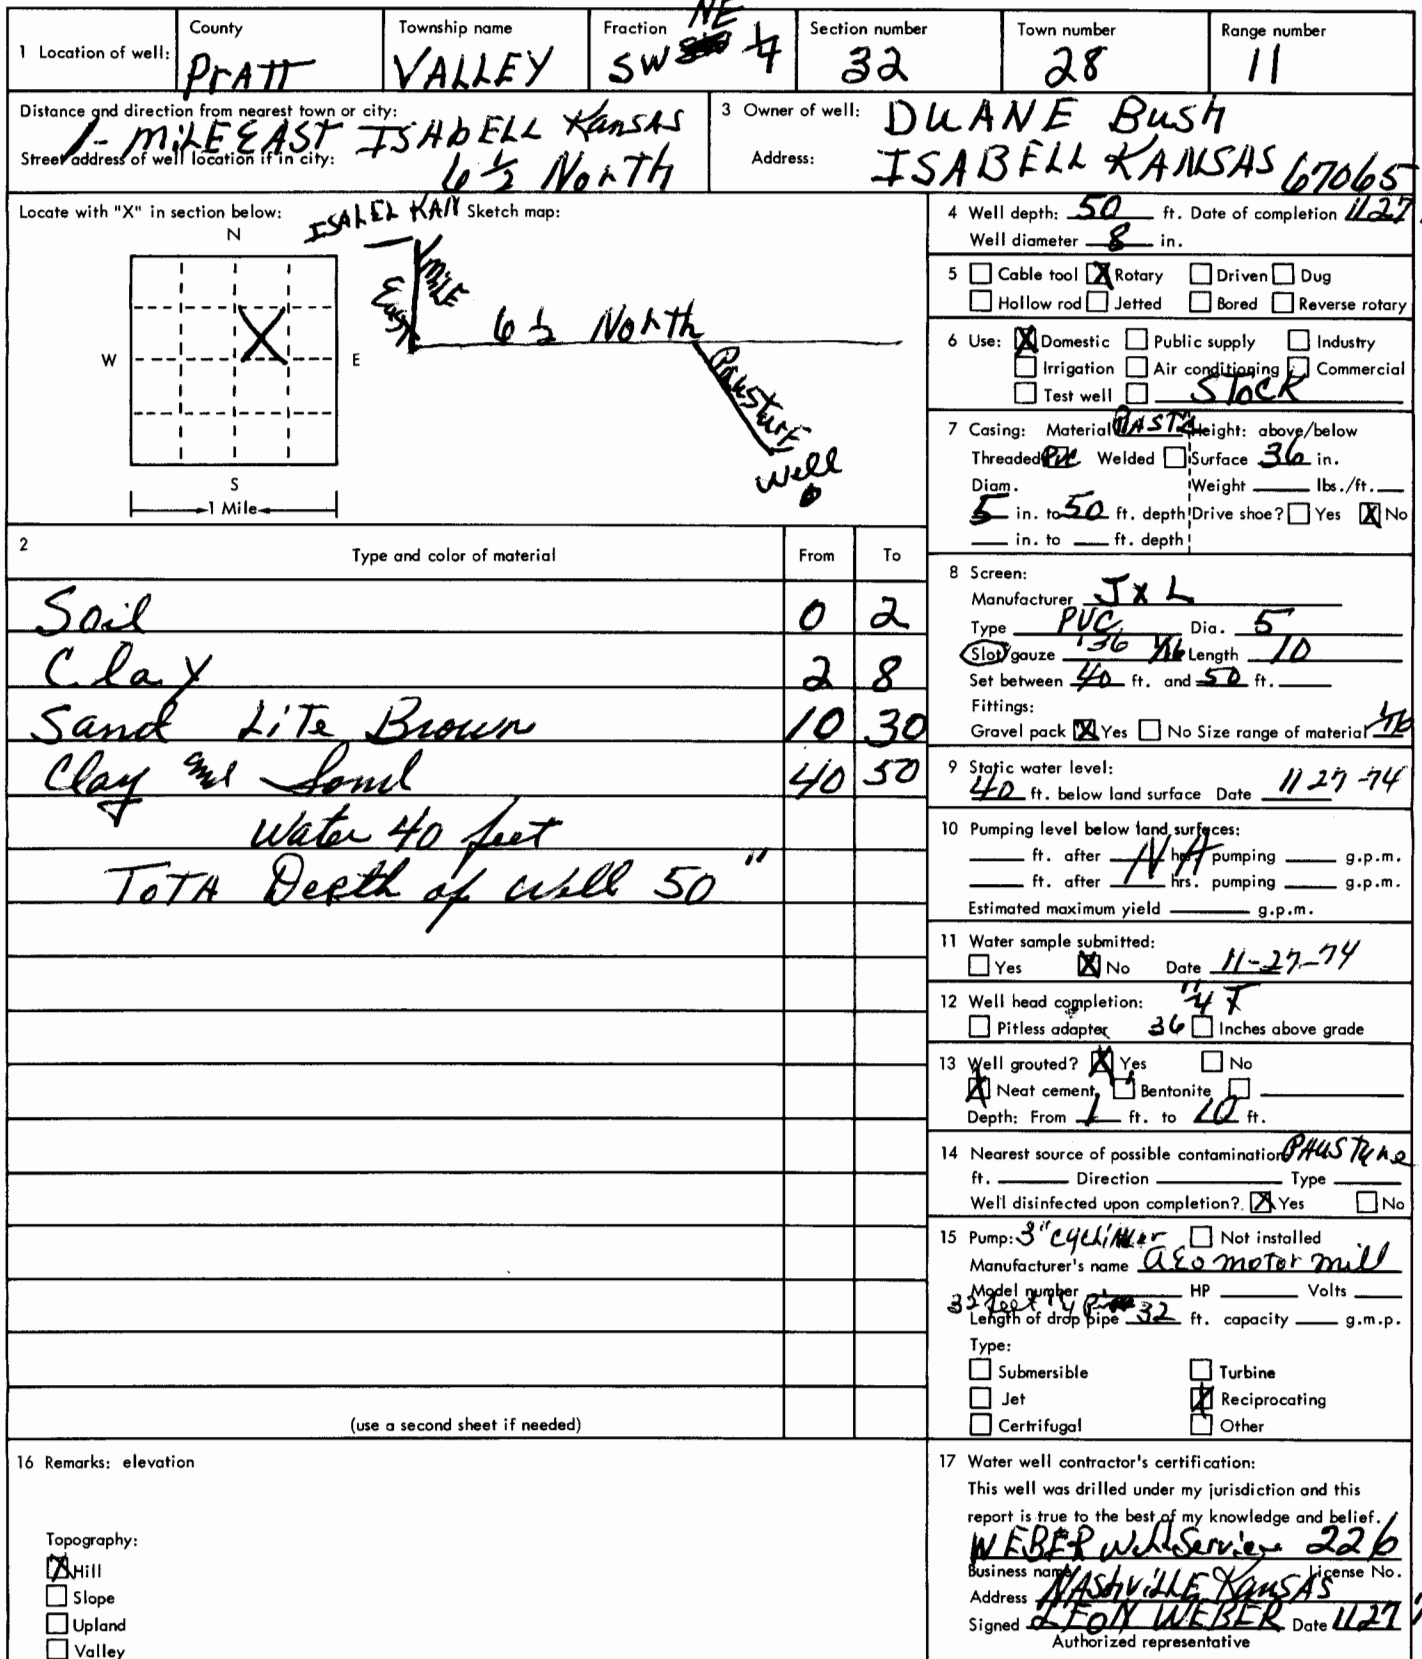 1 Location of well: County Township name Fraction NE Section number Town number Range number
PrATT VALLEY SW 1/4 32 28 11
Distance and direction from nearest town or city:
1- MiLE EAST ISAbELL KansAs
Street address of well location if in city:
6 1/2 NorTh
3 Owner of well: DUANE BusH
Address: ISABELL KANSAS 67065
Locate with "X" in section below:
N
W E
S
1 Mile
ISALEL KAN Sketch map:
East MiLE
6 1/2 North
PAusturE
well
4 Well depth: 50 ft. Date of completion 1127
Well diameter 8 in.
5 Cable tool X Rotary Driven Dug
Hollow rod Jetted Bored Reverse rotary
6 Use: X Domestic Public supply Industry
Irrigation Air conditioning Commercial
Test well STocK
7 Casing: Material PlASTic Height: above/below
Threaded PVC Welded Surface 36 in.
Diam. Weight lbs./ft.
5 in. to 50 ft. depth Drive shoe? Yes X No
in. to ft. depth
2 Type and color of material From To
Soil 0 2
Clay 2 8
Sand LiTe Brown 10 30
Clay and Sand 40 50
Water 40 feet
ToTA Depth of well 50 "
(use a second sheet if needed)
8 Screen:
Manufacturer J x L
Type PVC Dia. 5
Slot/gauze '36 1/16 Length 10
Set between 40 ft. and 50 ft.
Fittings:
Gravel pack X Yes No Size range of material 1/16
9 Static water level:
40 ft. below land surface Date 11 27-74
10 Pumping level below land surfaces:
ft. after NA hrs. pumping g.p.m.
ft. after hrs. pumping g.p.m.
Estimated maximum yield g.p.m.
11 Water sample submitted:
Yes X No Date 11-27-74
12 Well head completion:
Pitless adapter 36 Inches above grade
13 Well grouted? X Yes No
X Neat cement Bentonite
Depth: From 1 ft. to 10 ft.
14 Nearest source of possible contamination PAUSTure
ft. Direction Type
Well disinfected upon completion? X Yes No
15 Pump: 3" cyclinder Not installed
Manufacturer's name aEo motor mill
Model number HP Volts
32 feet
Length of drop pipe 32 ft. capacity g.m.p.
Type:
Submersible Turbine
Jet X Reciprocating
Certrifugal Other
16 Remarks: elevation
Topography:
X Hill
Slope
Upland
Valley
17 Water well contractor's certification:
This well was drilled under my jurisdiction and this
report is true to the best of my knowledge and belief.
WEBER Well Service 226
Business name License No.
Address NAShviLLE KansAS
Signed LEON WEBER Date 1127
Authorized representative